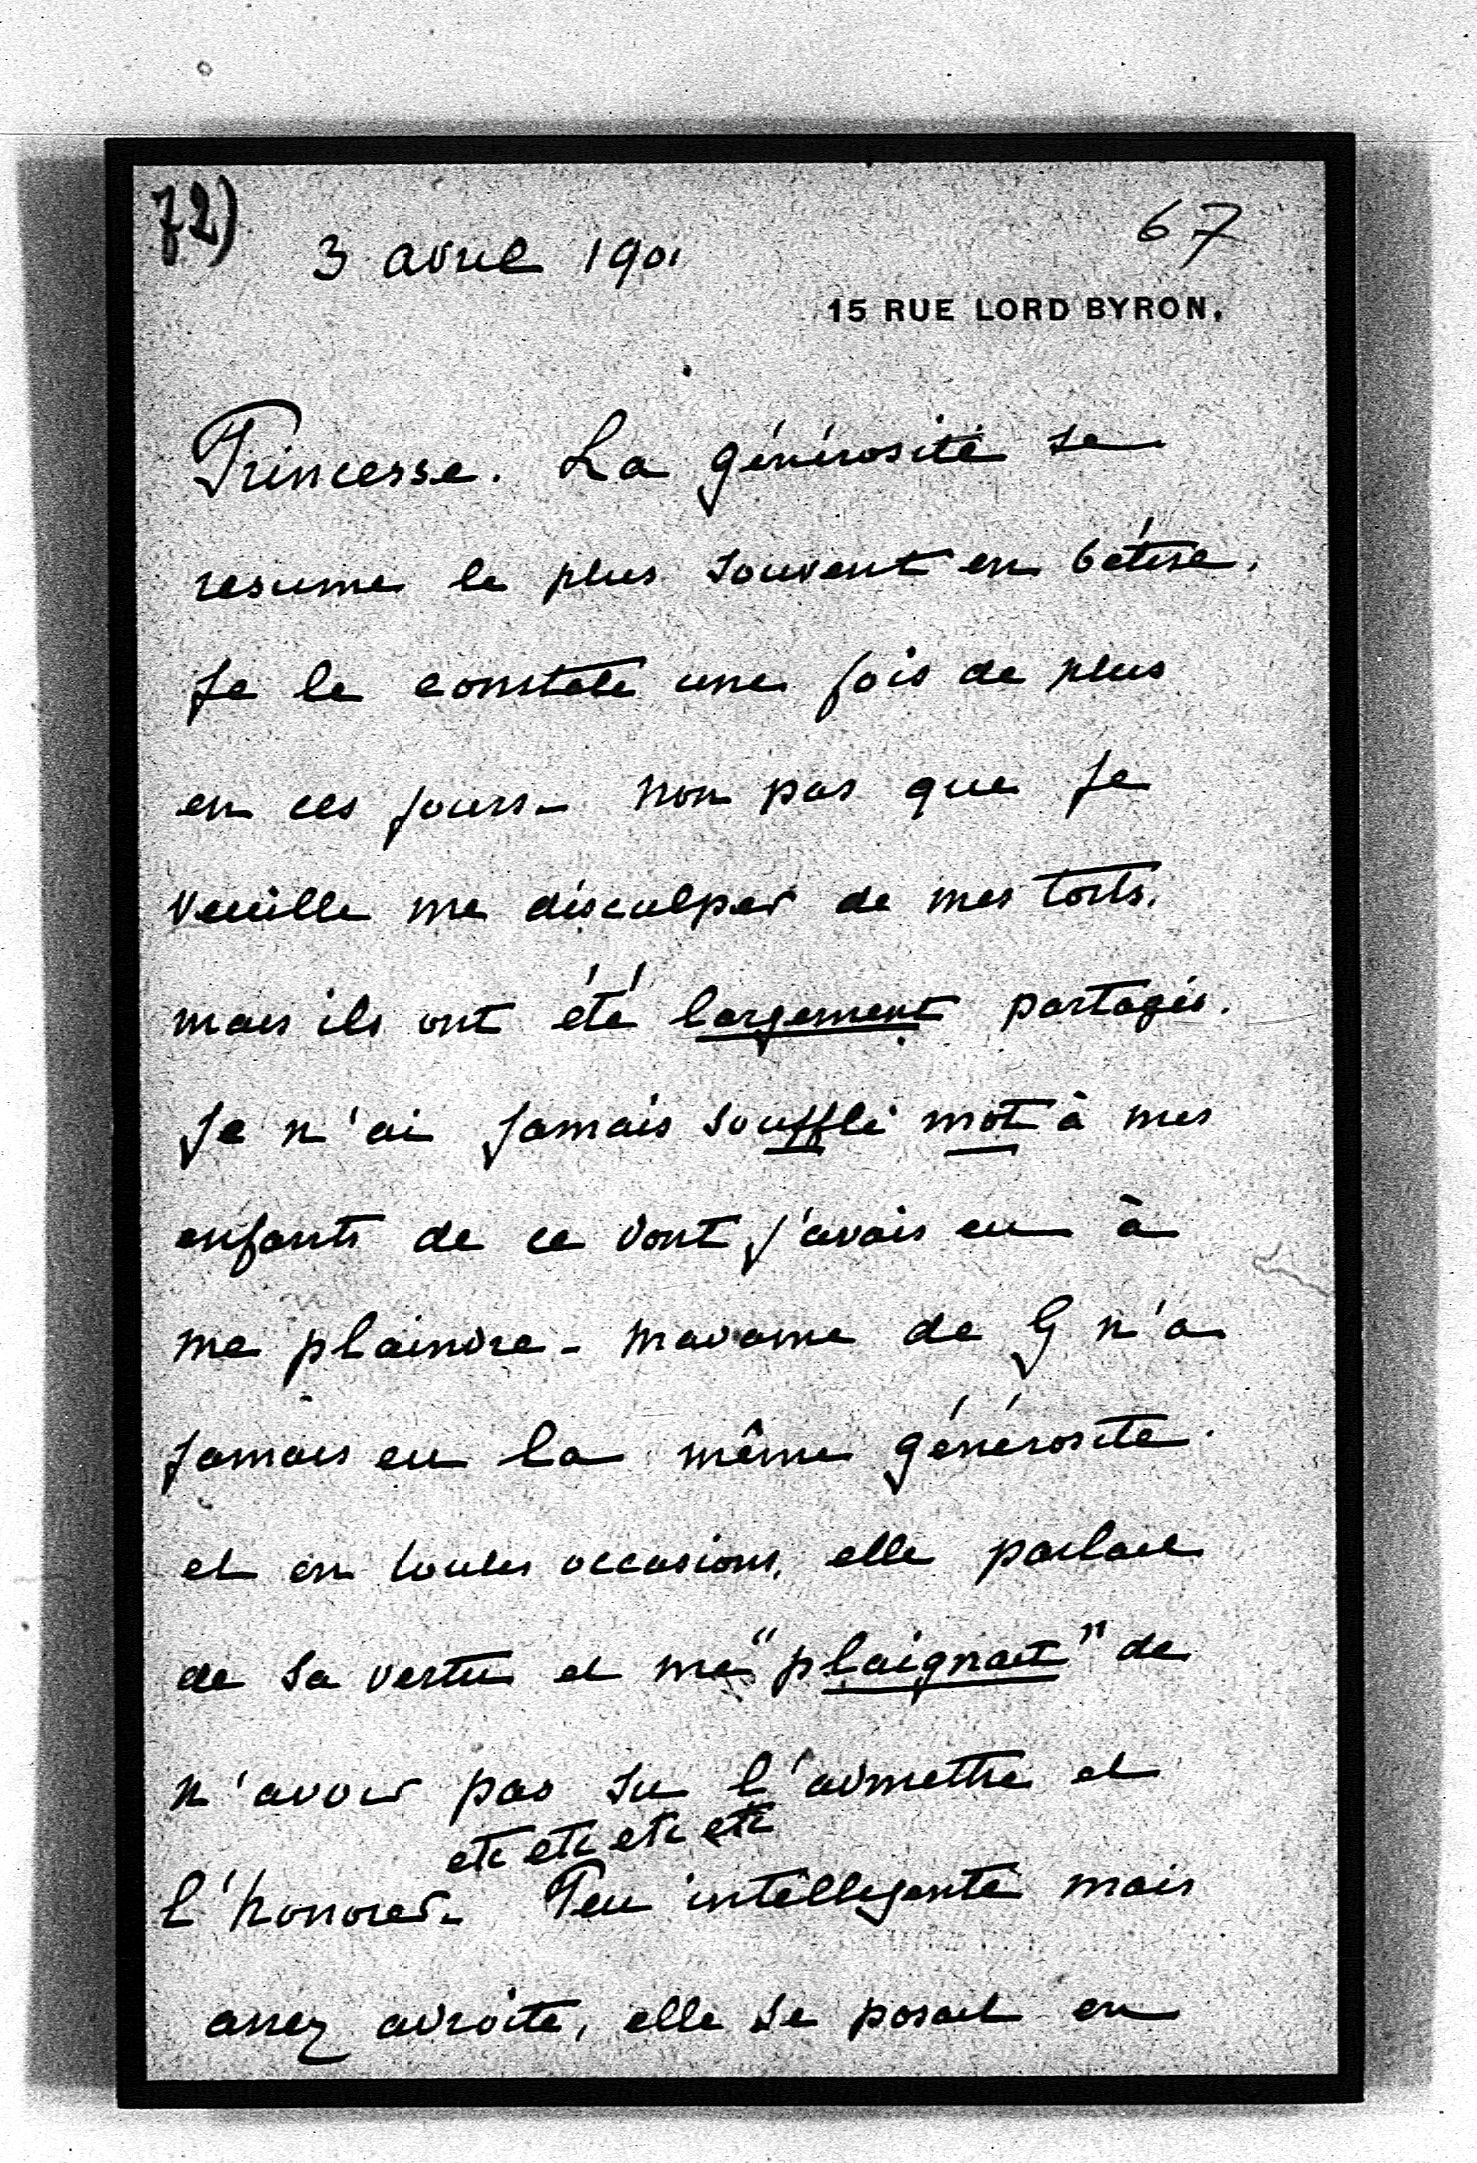 72)
67
3 avril 1901
15 RUE LORD BYRON.
Princesse. La générosité se
resume le plus souvent en bétise.
Je le constate une fois de plus
en ces jours - non pas que je
veuille me disculper de mes torts.
mais ils ont été largement partagés.
Je n'ai jamais soufflé mot à mes
enfants de ce dont j'avais eu à
me plaindre - Madame de G n'a
jamais eu la même générosité.
et en toutes occasions, elle parlait
de sa vertu et me "plaignait" de
n'avoir pas su l'admettre et
etc etc etc etc
l'honorer. Peu intelligente mais
assez adroite, elle se posait en